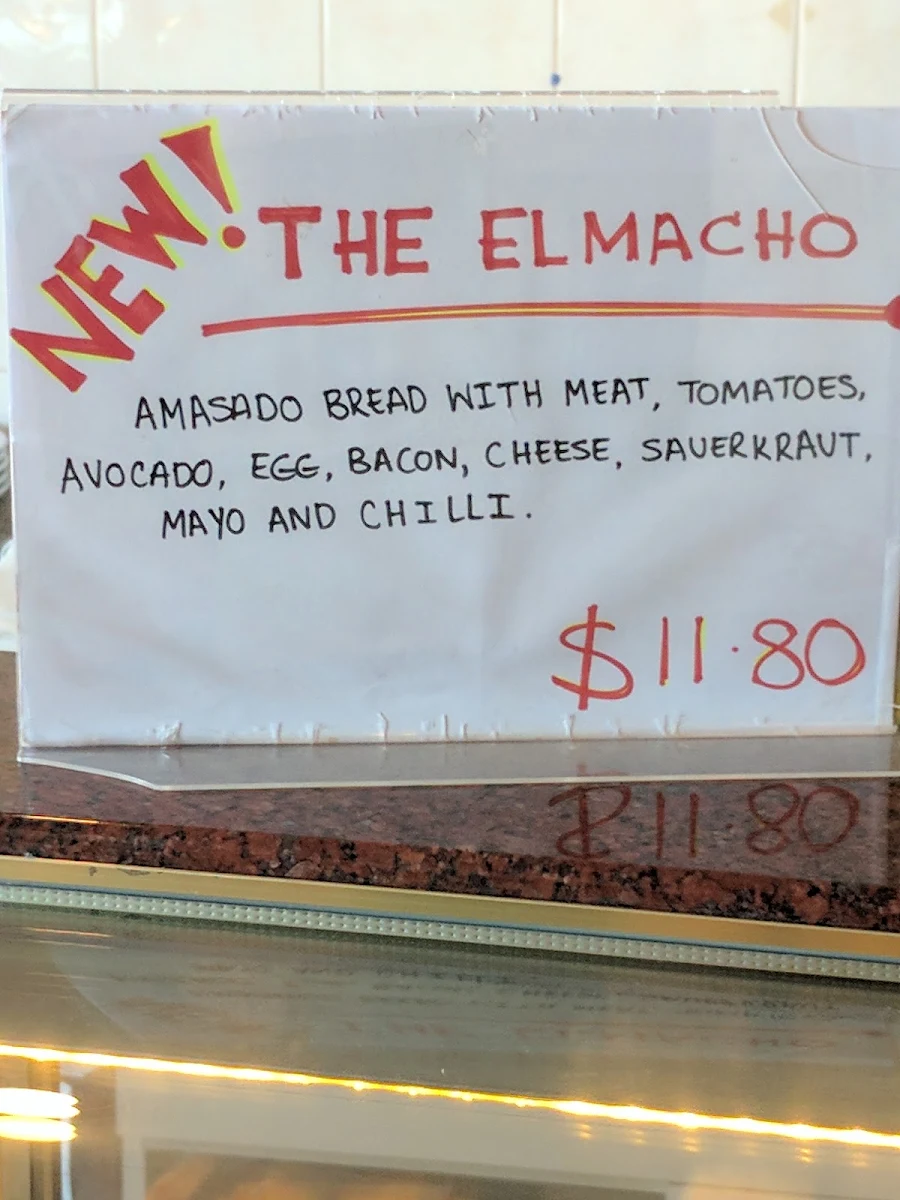 NEW! THE ELMACHO
AMASADO BREAD WITH MEAT, TOMATOES,
AVOCADO, EGG, BACON, CHEESE, SAUERKRAUT,
MAYO AND CHILLI.
$11.80